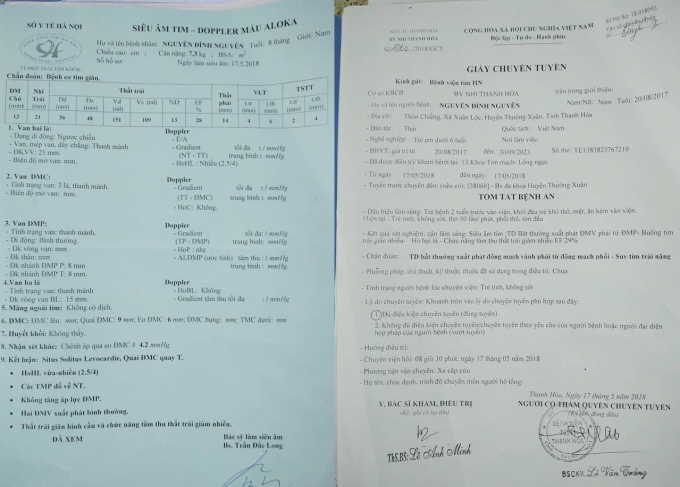 SỞ Y TẾ HÀ NỘI
VÌ MỘT TRÁI TIM KHỎE
SIÊU ÂM TIM – DOPPLER MÀU ALOKA
Họ và tên bệnh nhân: NGUYỄN ĐÌNH NGUYÊN Tuổi: 8 tháng Giới: Nam
Chiều cao: cm ; Cân nặng: 7.3 kg , BSA: m²
Số hồ sơ: Ngày làm siêu âm: 17.5.2018
Chẩn đoán: Bệnh cơ tim giãn.
ĐM Chủ (mm) Nhĩ Trái (mm) Thất trái Thất phải (mm) VLT TSTT
Dd (mm) Ds (mm) Vd (ml) Vs (ml) %D EF %
13 21 56 48 151 109 13 28 14 4 6 2 4
1. Van hai lá: Doppler
- Dạng di động: Ngược chiều - E/A
- Van, mép van, dây chằng: Thanh mảnh - Gradient tối đa : / mmHg
- ĐKVV: 21 mm. (NT - TT) trung bình : mmHg
- Biên độ mở van: mm. - HoHL : Nhiều (2.5/4)
2. Van ĐMC: Doppler
- Tình trạng van: 3 lá, thanh mảnh. - Gradient tối đa : / mmHg
- Biên độ mở van: mm. (TT - ĐMC) trung bình : mmHg
- HoC: Không.
3. Van ĐMP: Doppler
- Tình trạng van: thanh mảnh. - Gradient tối đa : / mmHg
- Di động: Bình thường. (TP - ĐMP) trung bình: mmHg
- Đk vòng van: mm - HoP : nhẹ
- Đk thân: mm - ALĐMP (ước tính) tâm thu : / mmHg
- Đk nhánh ĐMP P: 8 mm trung bình : mmHg
- Đk nhánh ĐMP T: 8 mm.
4.Van ba lá Doppler
- Tình trạng van: thanh mảnh - HoBL: Không
- Đk vòng van BL: 15 mm. - Gradient tâm thu tối đa : / mmHg
5. Màng ngoài tim: Không có dịch.
6. ĐMC: ĐMC lên: mm; Quai ĐMC: 9 mm; Eo ĐMC: 6 mm; ĐMC bụng: mm; TMC dưới: mm
7. Huyết khối: Không thấy.
8. Nhận xét khác: Chênh áp qua eo ĐMC # 4.2 mmHg.
9. Kết luận: Situs Solitus Levocardie, Quai ĐMC quay T.
• HoHL vừa-nhiều (2.5/4)
• Các TMP đổ về NT.
• Không tăng áp lực ĐMP.
• Hai ĐMV xuất phát bình thường.
• Thất trái giãn hình cầu và chức năng tâm thu thất trái giảm nhiều.
ĐÃ XEM Bác sỹ làm siêu âm
Bs. Trần Đắc Long
SỞ Y TẾ THANH HÓA
BV NHI THANH HÓA
/2018/GCT
CỘNG HÒA XÃ HỘI CHỦ NGHĨA VIỆT NAM
Độc lập - Tự do - Hạnh phúc
GIẤY CHUYỂN TUYẾN
Kính gửi: Bệnh viện tim HN
Cơ sở KBCB: BV NHI THANH HÓA trân trọng giới thiệu:
- Họ và tên người bệnh: NGUYỄN ĐÌNH NGUYÊN Nam/Nữ: Nam Tuổi: 20/08/2017
- Địa chỉ: Thôn Chiềng, Xã Xuân Lộc, Huyện Thường Xuân, Tỉnh Thanh Hóa
- Dân tộc: Thái Quốc tịch: Việt Nam
- Nghề nghiệp: Trẻ em dưới 6 tuổi Nơi làm việc:
- BHYT: giá trị từ 20/08/2017 đến 30/09/2023 Số thẻ: TE1383823767210
- Đã được điều trị/khám bệnh tại: 13.Khoa Tim mạch- Lồng ngực
- Từ ngày 17/05/2018 đến ngày: 17/05/2018
- Tuyến trước chuyển đến: (nếu có): [38060] - Bv đa khoa Huyện Thường Xuân
TÓM TẮT BỆNH ÁN
- Chẩn đoán: TD bất thường xuất phát động mạch vành phải từ động mạch phổi - Suy tim trái nặng
- Phương pháp, thủ thuật, kỹ thuật, thuốc đã sử dụng trong điều trị: Chưa
- Tình trạng người bệnh lúc chuyển viện: Trẻ tỉnh, không sốt
- Lý do chuyển tuyến: Khoanh tròn vào lý do chuyển tuyến phù hợp sau đây:
1 Đủ điều kiện chuyển tuyến (đúng tuyến)
2. Không đủ điều kiện chuyển tuyến/chuyển tuyến theo yêu cầu của người bệnh hoặc người đại diện hợp pháp của người bệnh (vượt tuyến)
- Hướng điều trị:
- Chuyển viện hồi: 08 giờ 30 phút, ngày 17 tháng 05 năm 2018
- Phương tiện vận chuyển: Xe cấp cứu
- Họ tên, chức danh, trình độ chuyên môn người hộ tống:
Thanh Hóa, Ngày 17 tháng 5 năm 2018
Y, BÁC SĨ KHÁM, ĐIỀU TRỊ NGƯỜI CÓ THẨM QUYỀN CHUYỂN TUYẾN
(Ký, ghi rõ họ tên) (Ký tên, đóng dấu)
BỆNH VIỆN NHI THANH HÓA
ThS.BS: Lê Anh Minh
BSCKII. Lê Văn Tráng